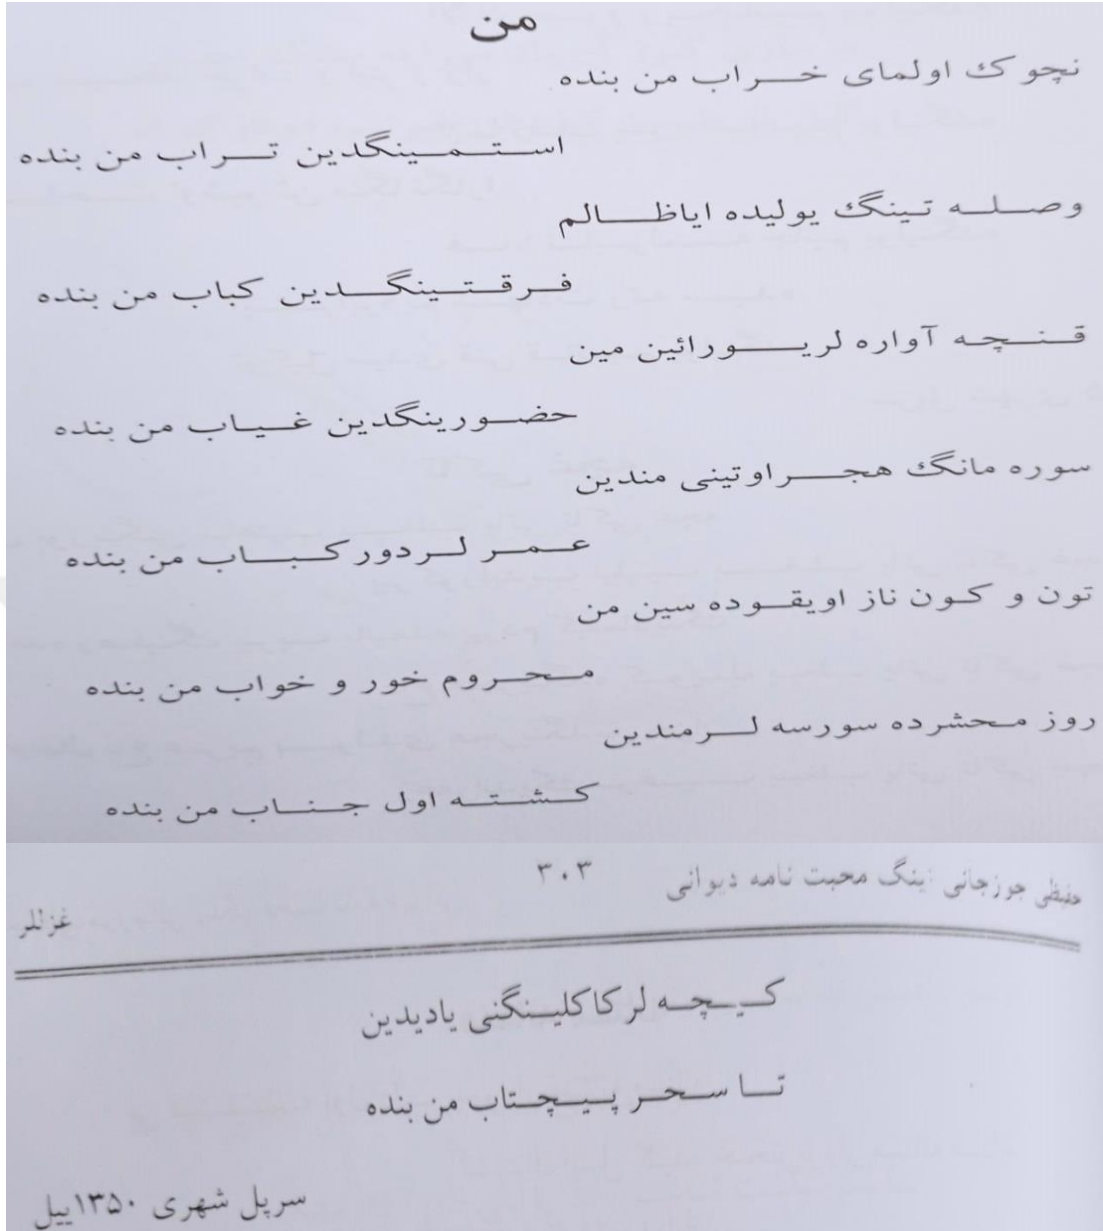 من
نچوک اولمای خراب من بنده
استمینگدین تراب من بنده
وصله تینگ یولیده ایاظالم
فرقتینگدین کباب من بنده
قنچه آواره لریورائین مین
حضورینگدین غیاب من بنده
سوره مانگ هجراوتینی مندین
عمر لردورکباب من بنده
تون و کون ناز اویقوده سین من
محروم خور و خواب من بنده
روز محشرده سورسه لرمندین
کشته اول جناب من بنده
حفیظی جوزجانی نینگ محبت نامه دیوانی ۳۰۳ غزللر
کیچه لرکاکلینگنی یادیدین
تا سحر پیچتاب من بنده
سرپل شهری ۱۳۵۰ییل